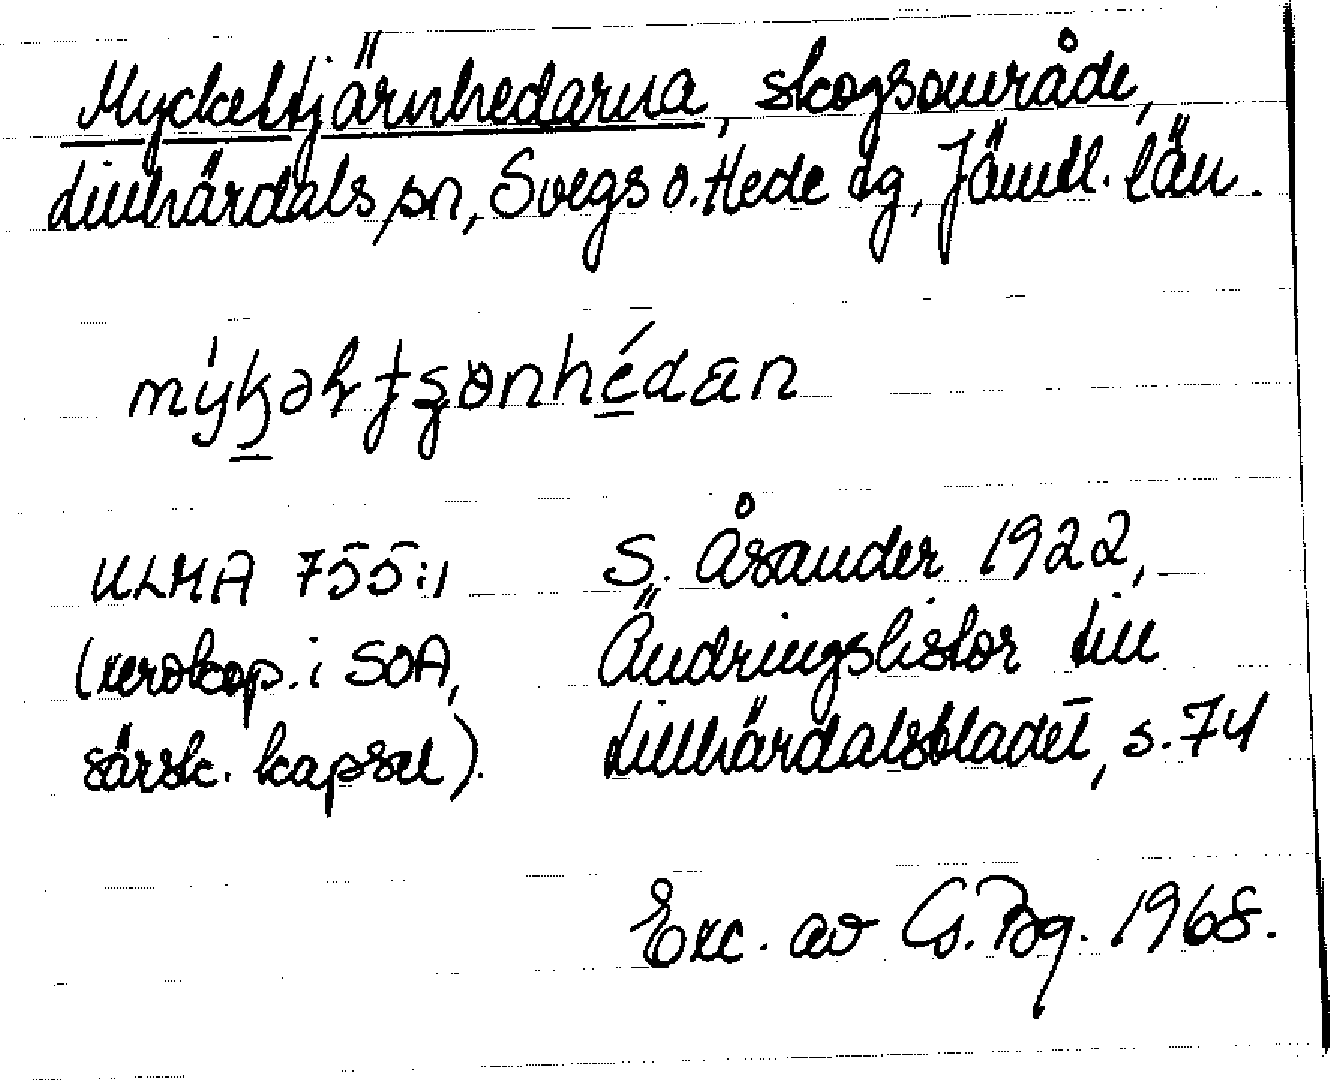 Myckeltjärnhedarna, skogsområde,
Lillhärdals sn, Svegs o. Hede dg, Jämtl. län.
ULMA 755:1
(xerokop. i SOA,
särsk. kapsel).
S. Åsander 1922,
Ändringslistor till
Lillhärdalsbladet, s. 74
Exc. av G. Bg. 1968.